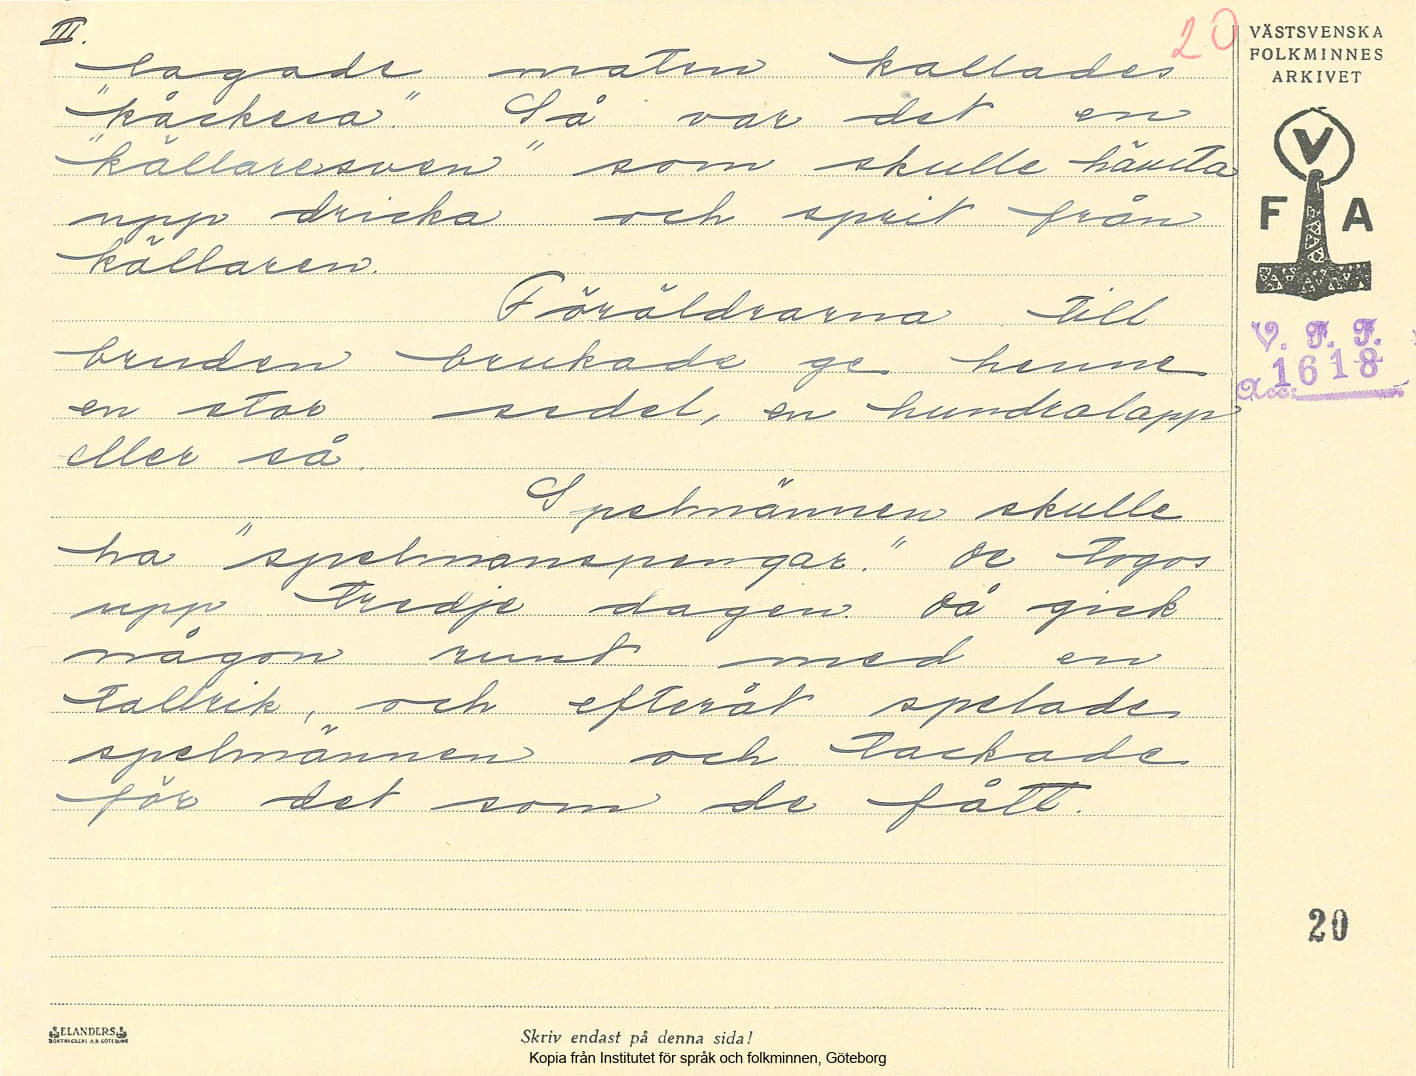 III.
20
lagade maten kallades
"kåckesa." Så var det en
"källaresven" som skulle hämta
upp dricka och sprit från
källaren.
Föräldrarna till
bruden brukade ge henne
en stor sedel, en hundralapp
eller så.
Spelmännen skulle
ha "spelmanspengar." De togos
upp tredje dagen. Då gick
någon runt med en
tallrik, och efteråt spelade
spelmännen och tackade
för det som de fått.
VÄSTSVENSKA
FOLKMINNES
ARKIVET
V
F A
V. F. F.
Acc. 1618
20
ELANDERS
BOKTRYCKERI A.B. GÖTEBORG
Skriv endast på denna sida!
Kopia från Institutet för språk och folkminnen, Göteborg